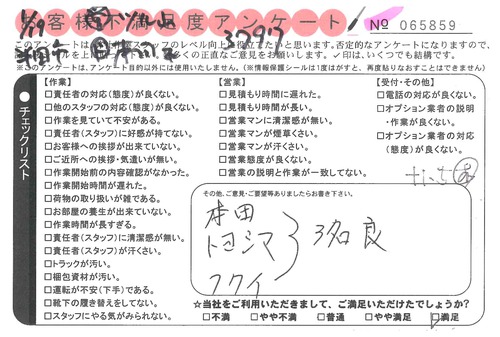 お客様不満足度アンケート
№ 065859
1/29
32917
このアンケートは
スタッフのレベル向上に役立てたいと思います。否定的なアンケートになりますので、
多くの正直なご意見をお願いします。✓印は、いくつでも結構です。
※このアンケートは、アンケート目的以外には使用いたしません。(情報保護シールは1度はがすと、再度貼りなおすことはできません)
チェックリスト
【作業】
□責任者の対応(態度)が良くない。
□他のスタッフの対応(態度)が良くない。
□作業を見ていて不安がある。
□責任者(スタッフ)に好感が持てない。
□お客様への挨拶が出来ていない。
□ご近所への挨拶・気遣いが無い。
□作業開始前の内容確認がなかった。
□作業開始時間が遅れた。
□荷物の取り扱いが雑である。
□お部屋の養生が出来ていない。
□作業時間が長すぎる。
□責任者(スタッフ)に清潔感が無い。
□責任者(スタッフ)が汗くさい。
□トラックが汚い。
□梱包資材が汚い。
□運転が不安(下手)である。
□靴下の履き替えをしてない。
□スタッフにやる気がみられない。
【営業】
□見積もり時間に遅れた。
□見積もり時間が長い。
□営業マンに清潔感が無い。
□営業マンが煙草くさい。
□営業マンが汗くさい。
□営業態度が良くない。
□営業の説明と作業が一致してない。
【受付・その他】
□電話の対応が良くない。
□オプション業者の説明
・作業が良くない。
□オプション業者の対応
(態度)が良くない。
その他、ご意見・ご要望等ありましたらお書き下さい。
本田
トヨシマ
フクイ
3名良
☆当社をご利用いただきまして、ご満足いただけたでしょうか?
□不満 □やや不満 □普通 □やや満足 □満足